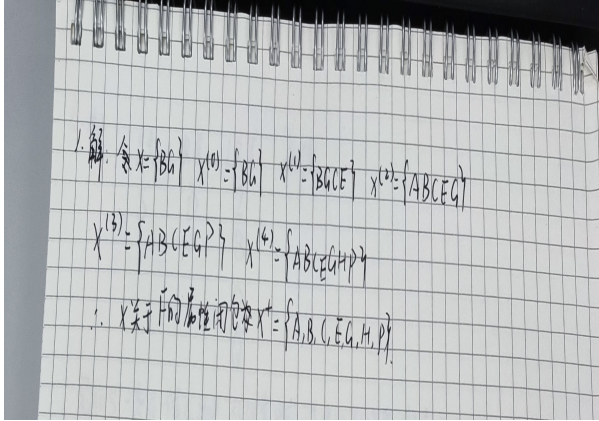 1. 解. 令X={BG} X⁽⁰⁾={BG} X⁽¹⁾={BGCE} X⁽²⁾={ABCEG}
X⁽³⁾={ABCEGP} X⁽⁴⁾={ABCEGHP}
∴ X关于F的属性闭包X⁺={A,B,C,E,G,H,P}.